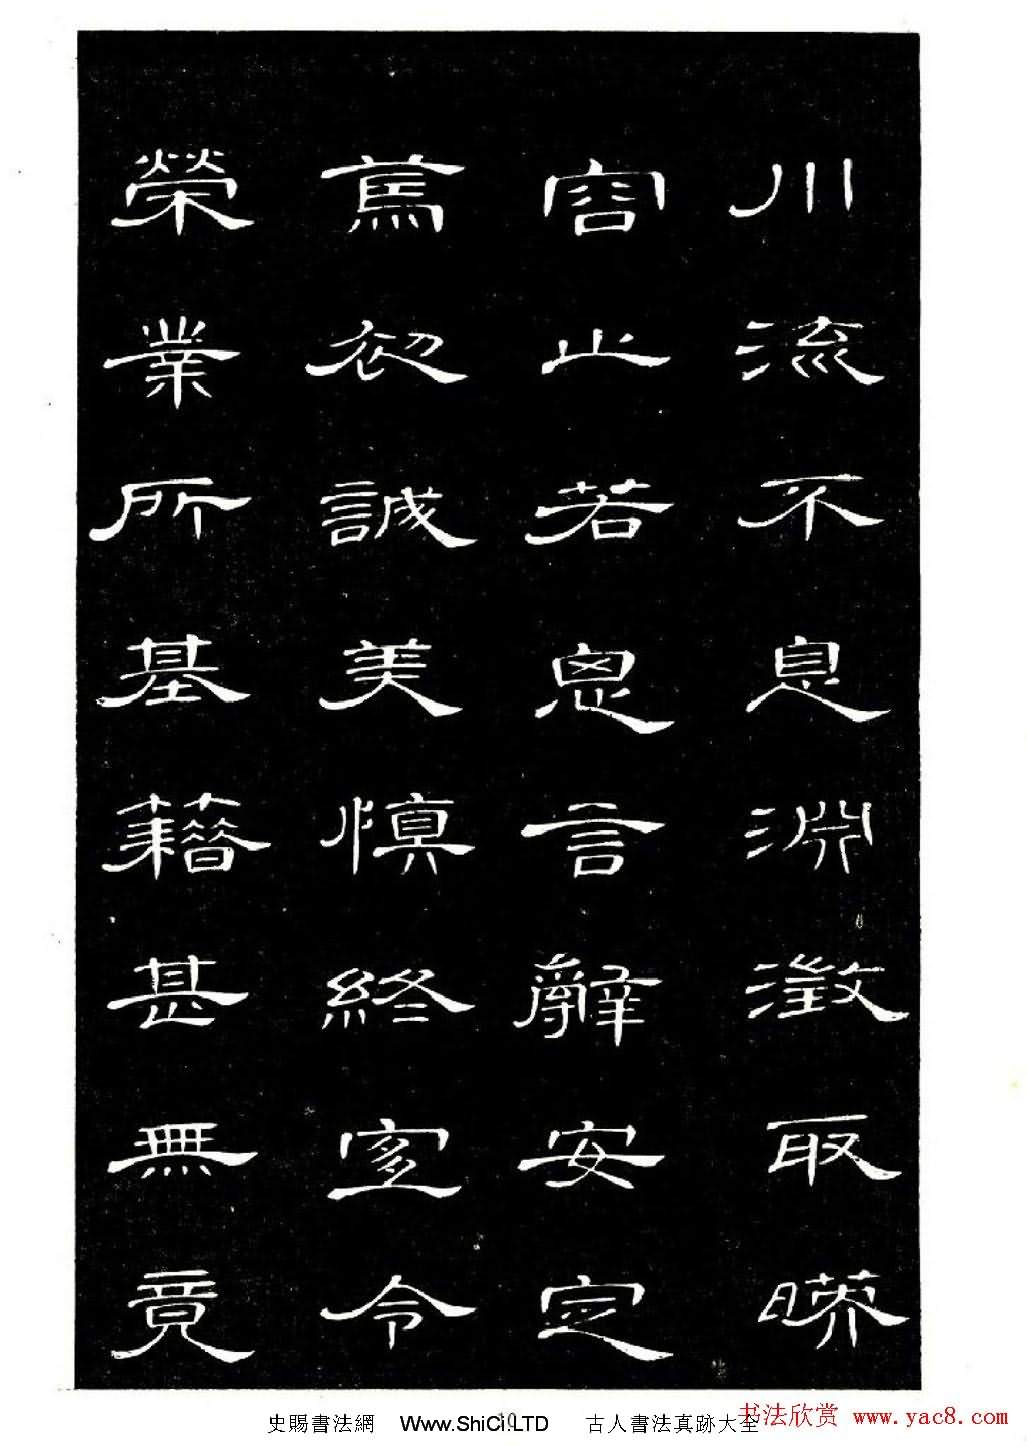 川流不息淵澂取暎
容止若思言辭安定
篤初誠美慎終宜令
榮業所基籍甚無竟
史賜書法網 Www.ShiCi.LTD 古人書法真跡大全
10
书法欣赏 www.yac8.com